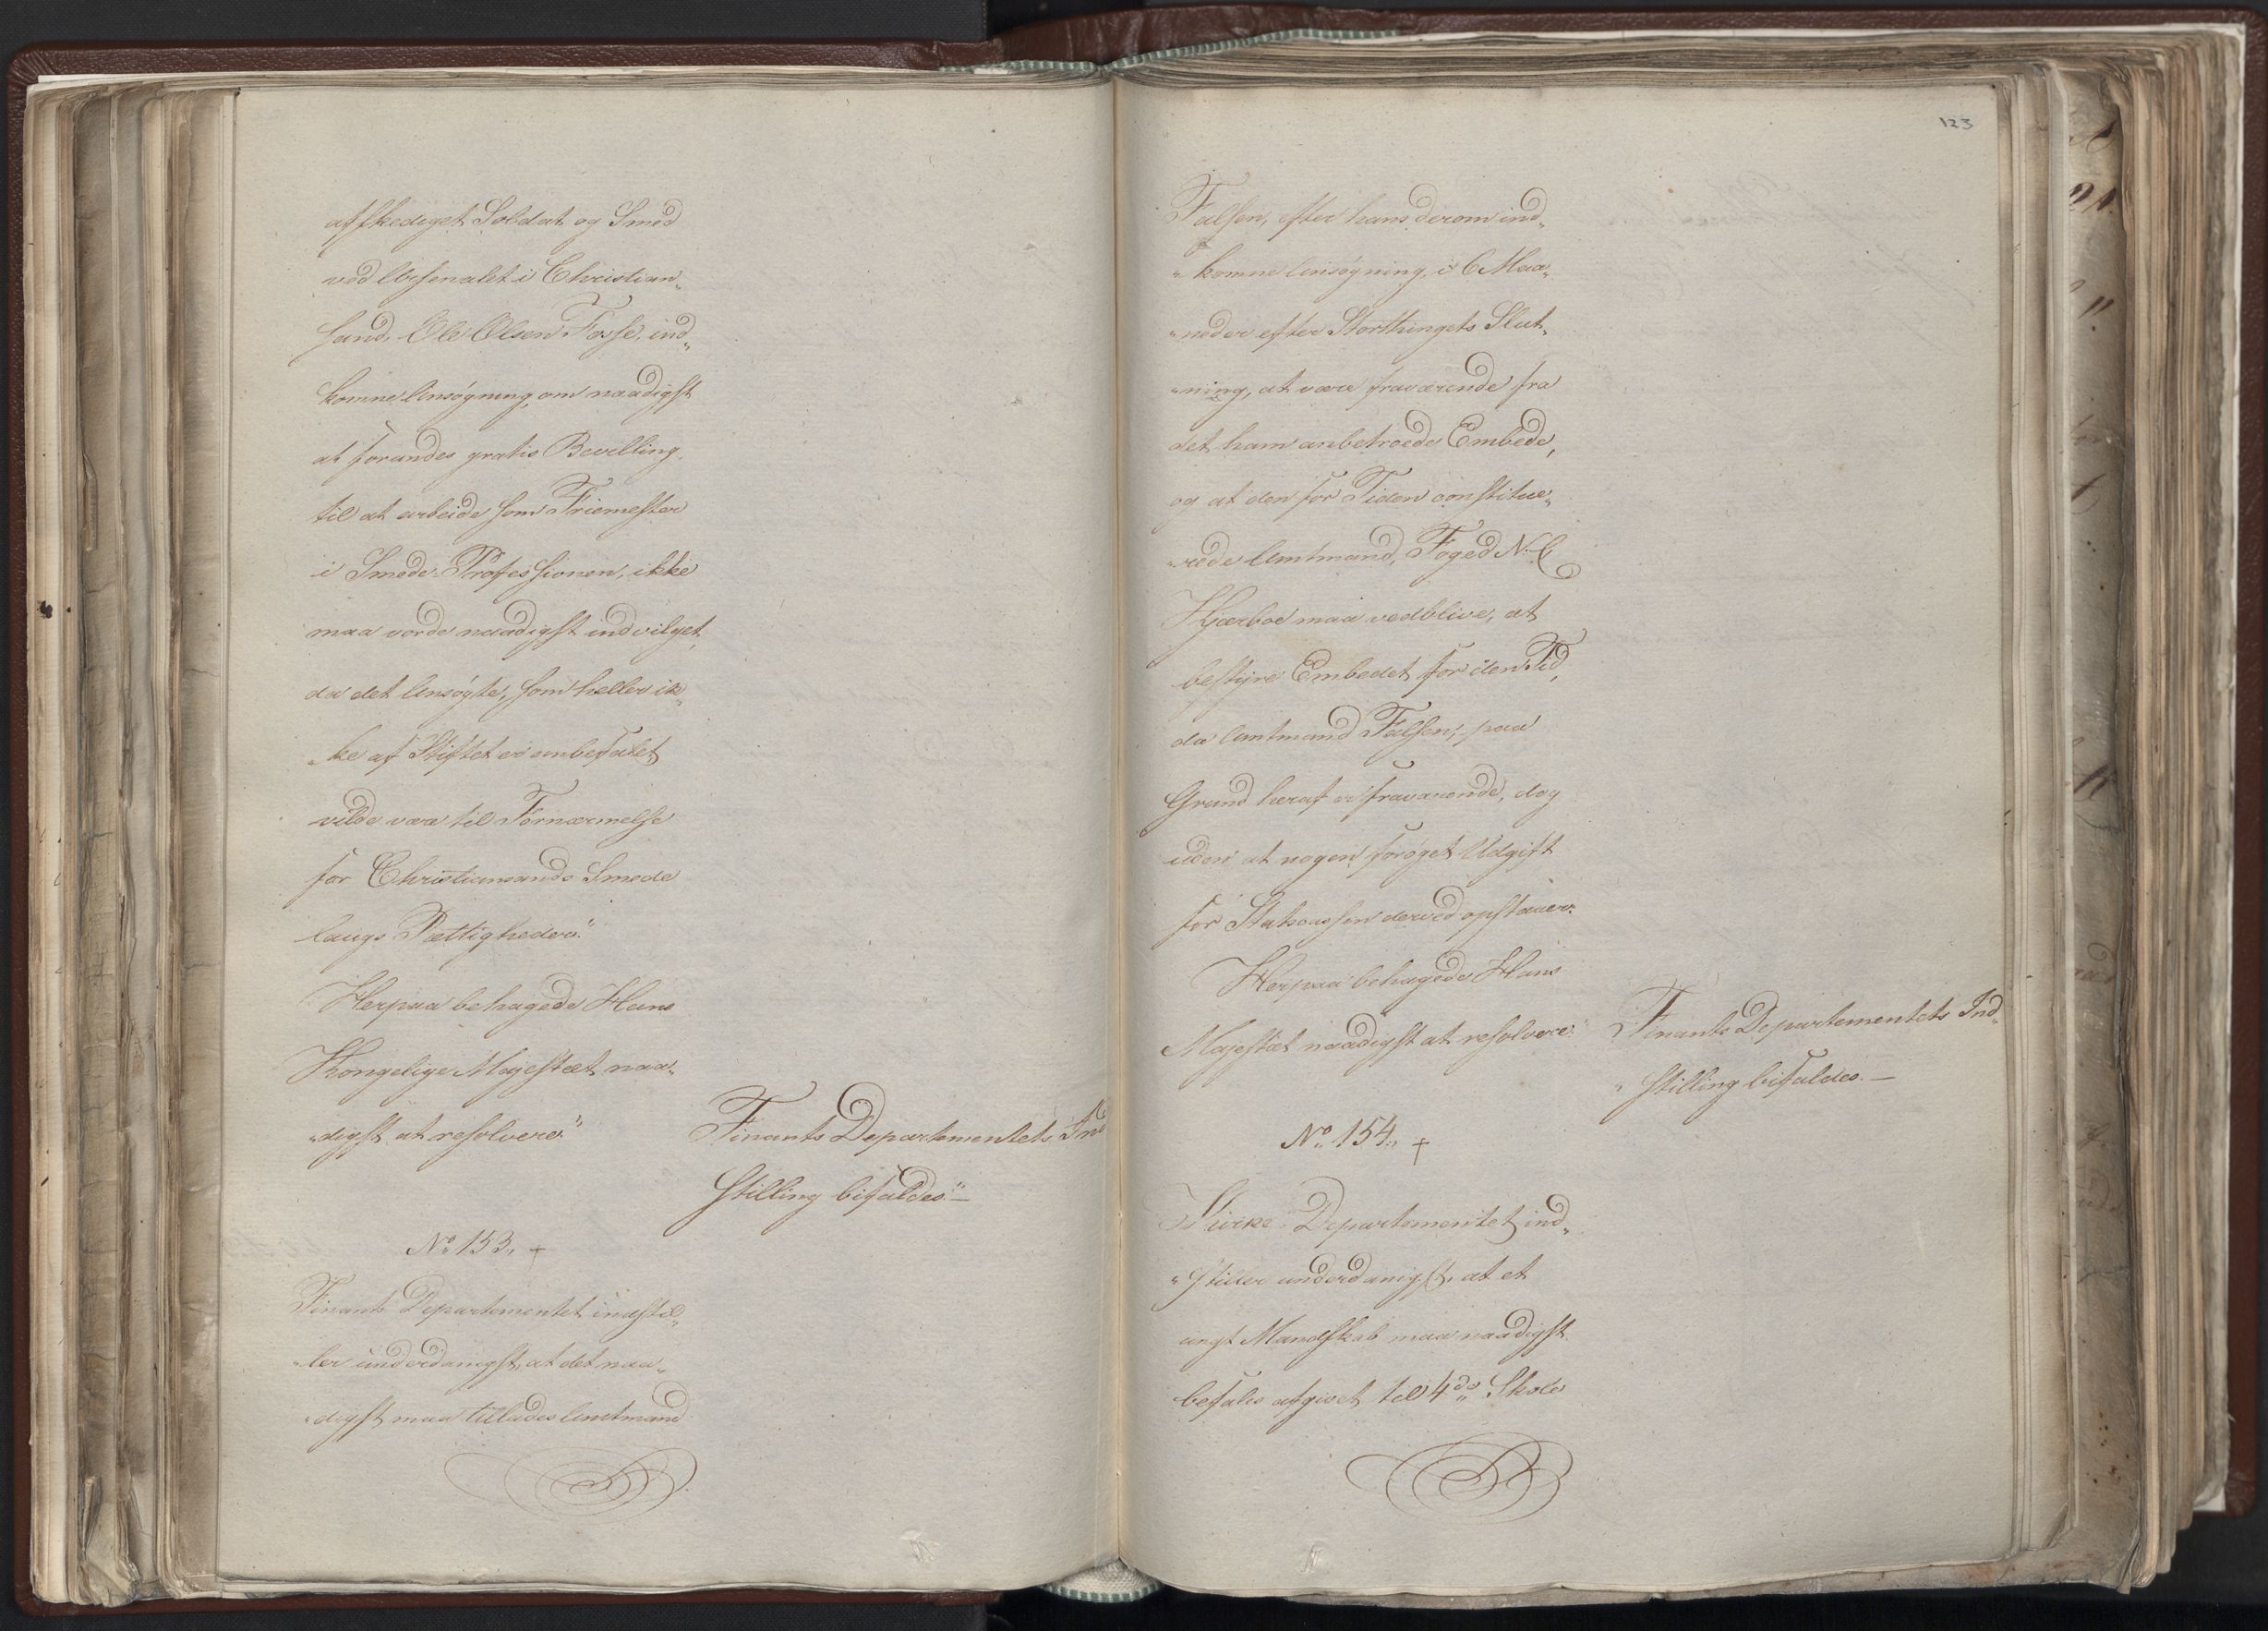 affskediget Soldat og Smed
ved Arsenalet i Christian„
sand, Ole Olsen Fosse, ind„
komne Ansøgning, om naadigst
at forundes gratis Bevilling
til at arbeide som Friemester
i Smede-Professionen, ikke
maa vorde naadigst indvilget,
da det Ansøgte, som heller ik„
„ke af Stiftet er anbefalet,
vilde være til Fornærmelse
for Christiansands Smede
laugs Rettigheder."
Herpaa behagede Hans
Kongelige Majestæt naa„
„digst at resolvere:"
Finants Departementets Ind
stilling bifaldes."—
No. 153. +
Finants Departementet indstil„
„ler underdanigst, at det naa„
„digst maa tillades Amtmand
123
Falsen, efter hans derom ind„
„komne Ansøgning, i 6 Maa„
„neder efter Storthingets Slut„
„ning, at være fraværende fra
det ham anbetroede Embede,
og at den for Tiden constitue„
„rede Amtmand, Foged N. C.
Hjærboe maa vedblive, at
bestyre Embedet for den Tid,
da Amtmand Falsen, paa
Grund heraf er fraværende, dog
uden at nogen forøget Udgift
for Statscassen derved opstaaer.
Herpaa behagede Hans
Majestæt naadigst at resolvere:"
Finants Departementets Ind„
„stilling bifaldes.—
No. 154. +
Kirke-Departementet ind„
„stiller underdanigst, at et
ungt Mandskab maa naadigst
befales afgivet til 4de Skole